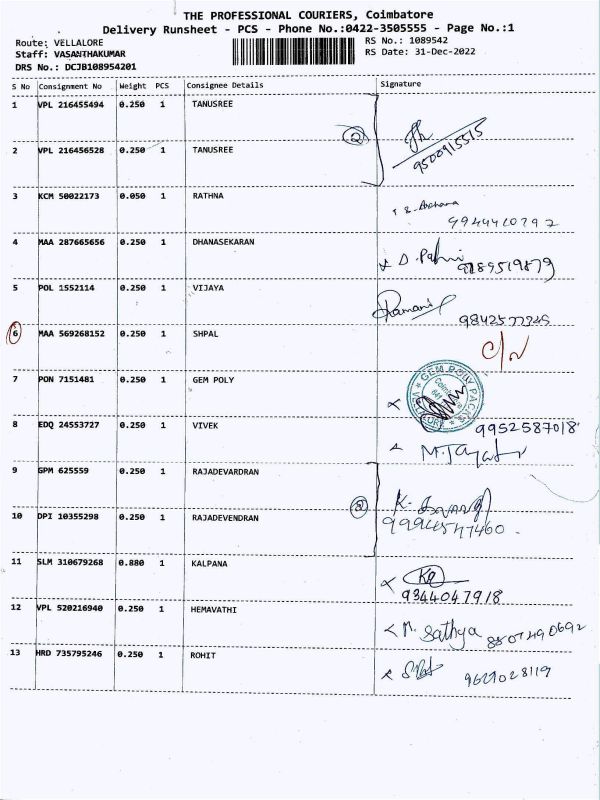 THE PROFESSIONAL COURIERS, Coimbatore
Delivery Runsheet - PCS - Phone No.:0422-3505555 - Page No.:1
Route: VELLALORE
Staff: VASANTHAKUMAR
DRS No.: DCJB108954201
RS No.: 1089542
RS Date: 31-Dec-2022
S No Consignment No Weight PCS Consignee Details Signature
1 VPL 216455494 0.250 1 TANUSREE
2
9500915515
2 VPL 216456528 0.250 1 TANUSREE
3 KCM 50022173 0.050 1 RATHNA
4 MAA 287665656 0.250 1 DHANASEKARAN
9789519879
5 POL 1552114 0.250 1 VIJAYA
Ramani
6 MAA 569268152 0.250 1 SHPAL
7 PON 7151481 0.250 1 GEM POLY
GEM POLY PACKS
VELLALORE
8 EDQ 24553727 0.250 1 VIVEK
9952587018
9 GPM 625559 0.250 1 RAJADEVARDRAN
2
10 DPI 10355298 0.250 1 RAJADEVENDRAN
11 SLM 310679268 0.880 1 KALPANA
9344047918
12 VPL 520216940 0.250 1 HEMAVATHI
M. Sathya 8807490692
13 HRD 735795246 0.250 1 ROHIT
9629028119